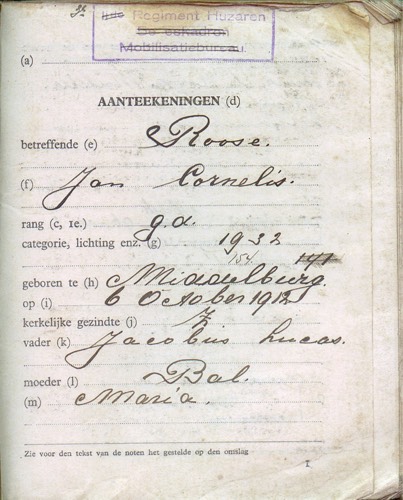 Regiment Huzaren
De eskadron
Mobilisatiebureau
(a)
AANTEEKENINGEN (d)
betreffende (e) Roose.
(f) Jan Cornelis.
rang (c, 1e.) g.d.
categorie, lichting enz. (g) 1932
154. 141
geboren te (h) Middelburg.
op (i) 6 October 1912
kerkelijke gezindte (j)
vader (k) Jacobus Lucas.
moeder (l) Bal.
(m) Maria.
Zie voor den tekst van de noten het gestelde op den omslag
1